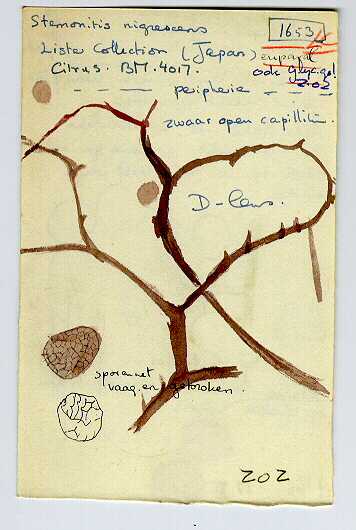 Stemonitis nigrescens
1653
Lister Collection (Japan)
Citrus. BM. 4017.
ook Glyc. gel.
202
- - - - - peripherie - - -
zwaar open capillitium.
D-lens.
sporennet
vaag en gebroken.
202